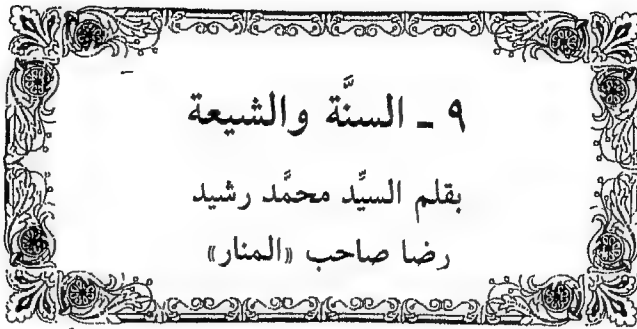 ٩ - السنَّة والشيعة
بقلم السيِّد محمَّد رشيد
رضا صاحب «المنار»